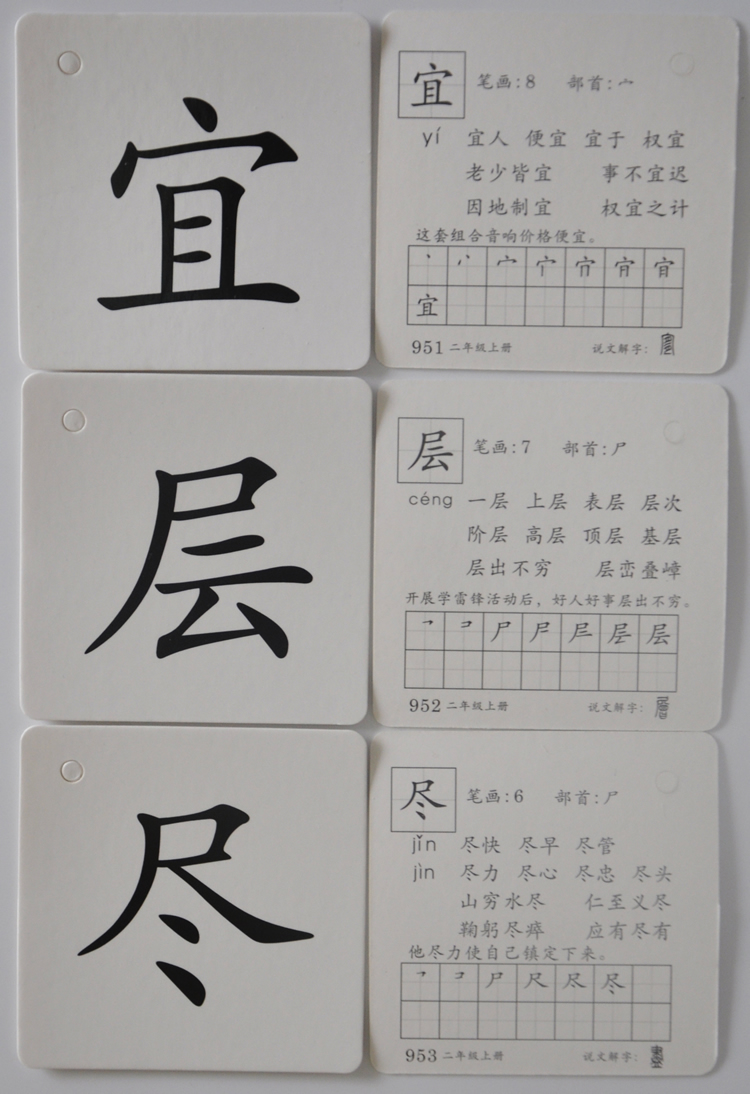 宜
宜 笔画:8 部首:宀
yí 宜人 便宜 宜于 权宜
老少皆宜 事不宜迟
因地制宜 权宜之计
这套组合音响价格便宜。
宜
951 二年级上册 说文解字:
层
层 笔画:7 部首:尸
céng 一层 上层 表层 层次
阶层 高层 顶层 基层
层出不穷 层峦叠嶂
开展学雷锋活动后，好人好事层出不穷。
层
952 二年级上册 说文解字:
尽
尽 笔画:6 部首:尸
jǐn 尽快 尽早 尽管
jìn 尽力 尽心 尽忠 尽头
山穷水尽 仁至义尽
鞠躬尽瘁 应有尽有
他尽力使自己镇定下来。
尽
953 二年级上册 说文解字: